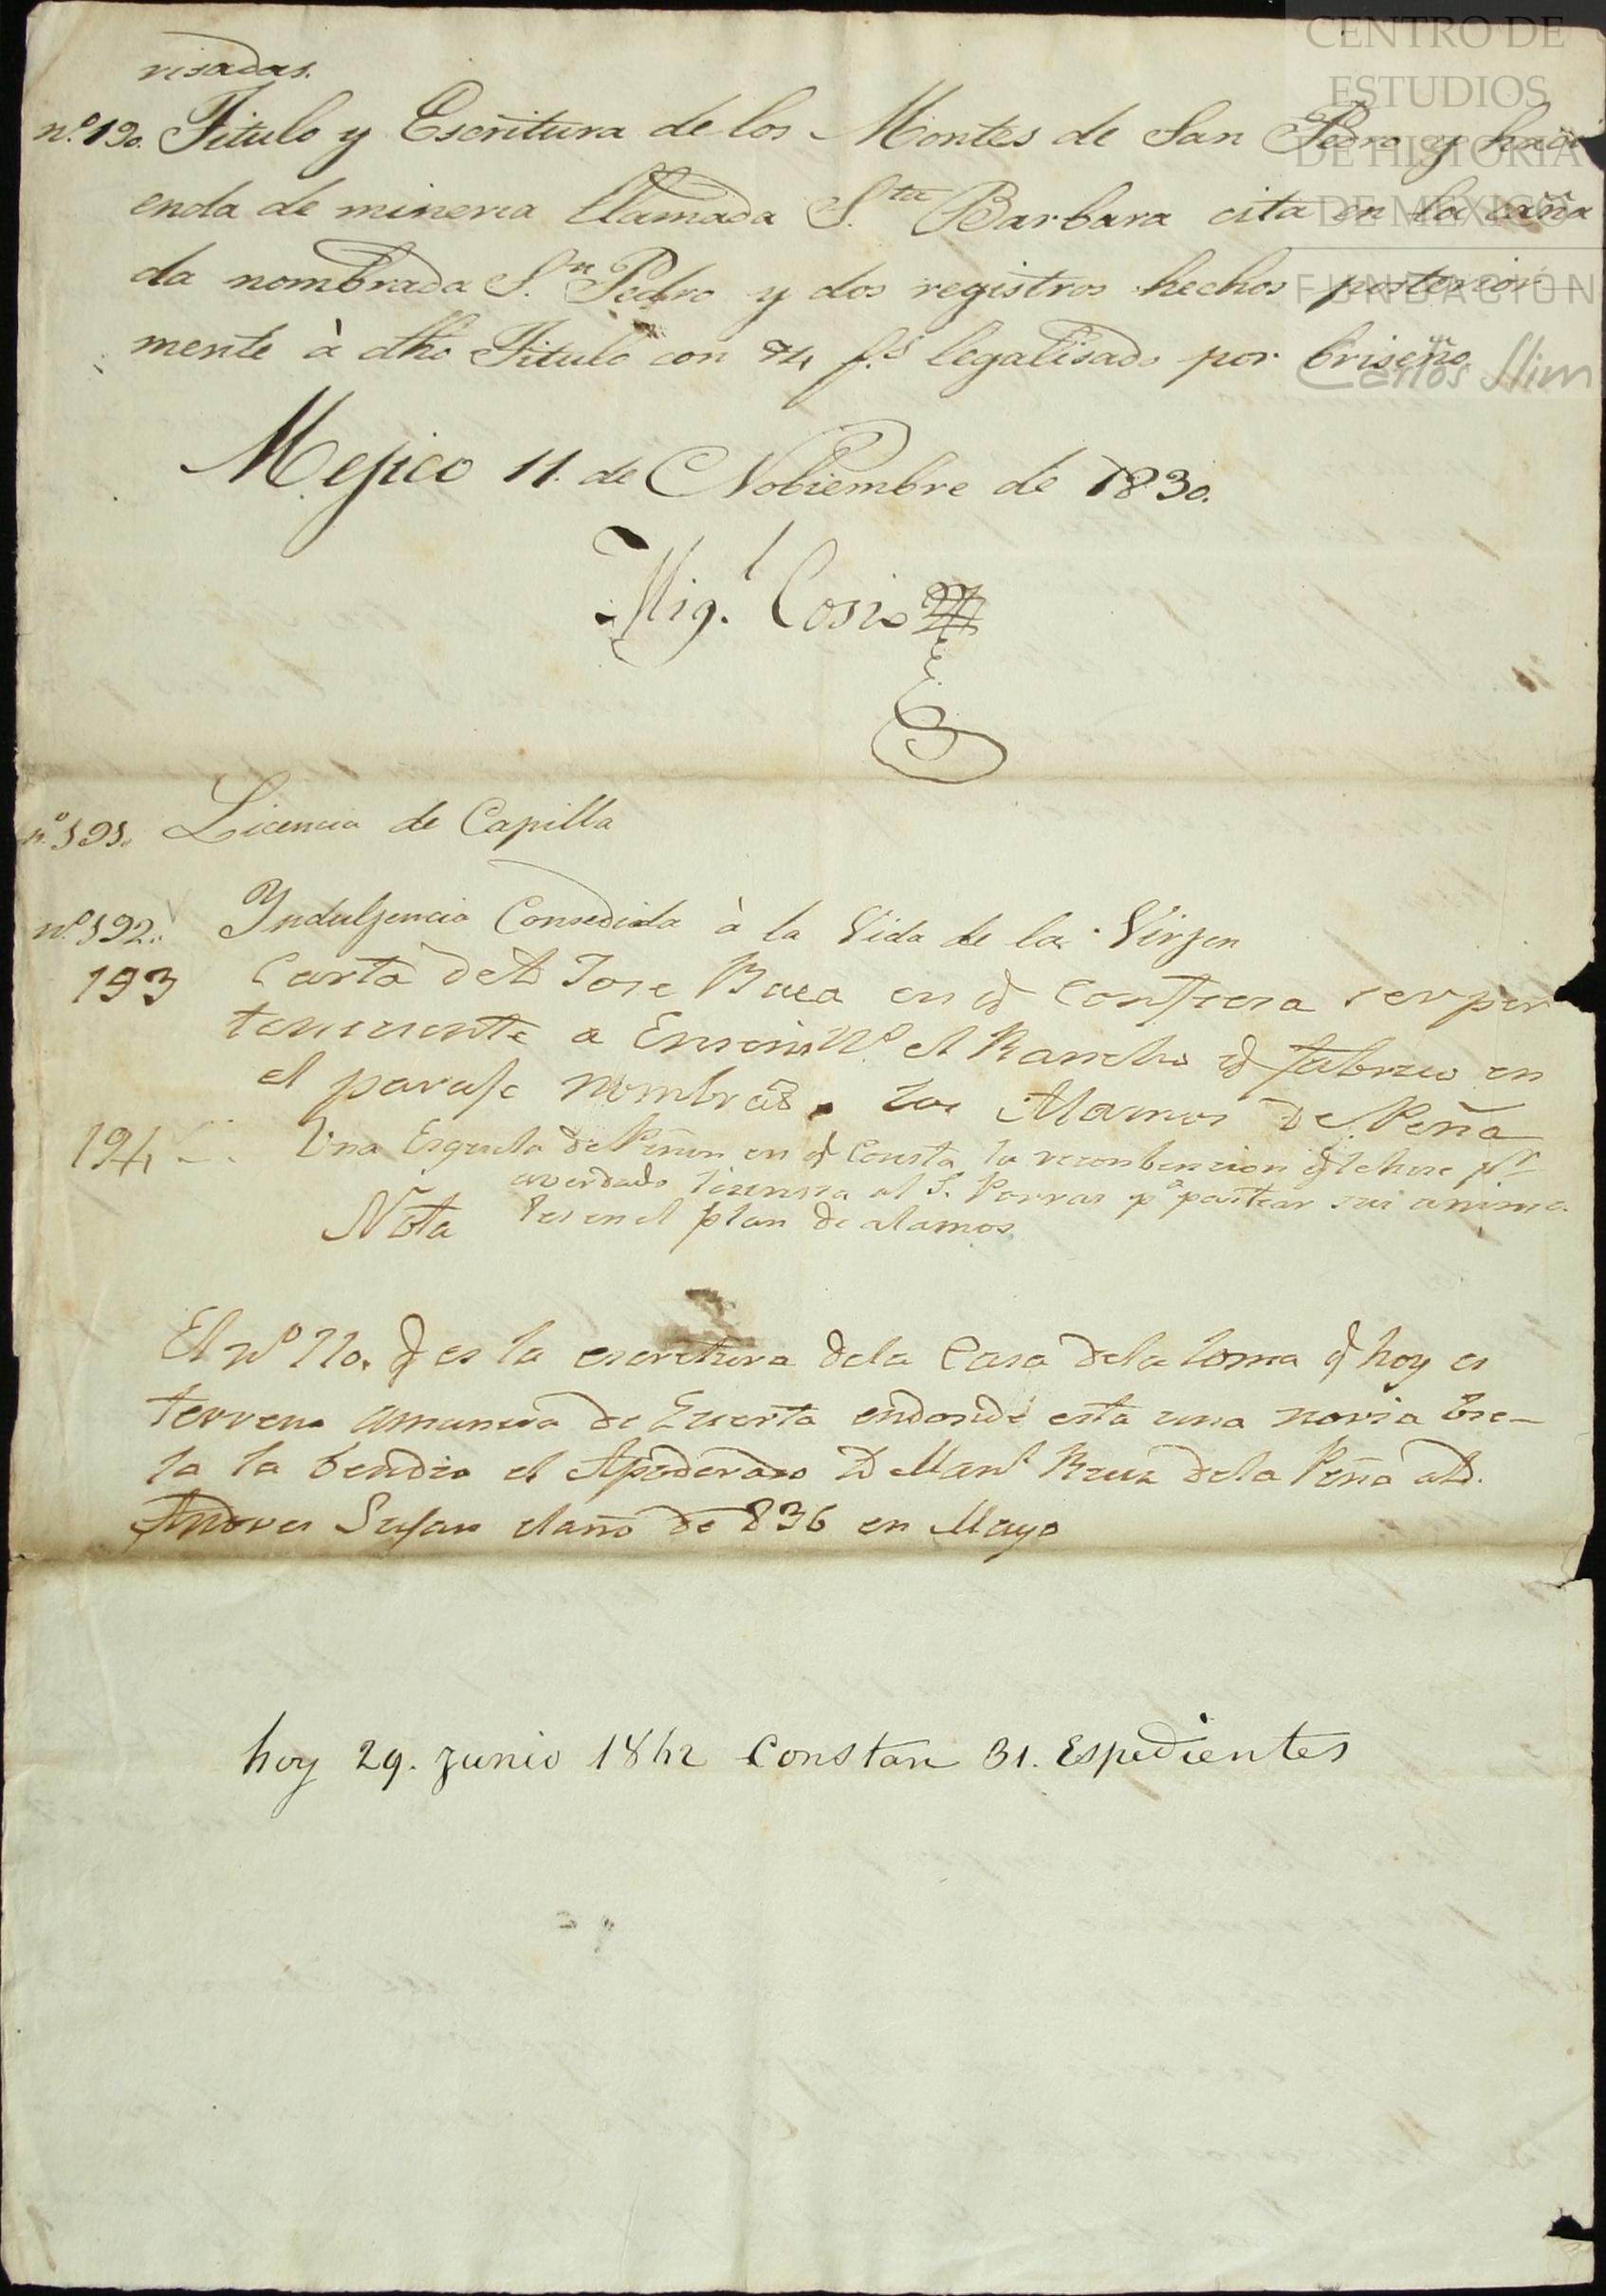 CENTRO DE
ESTUDIOS
DE HISTORIA
DE MEXICO
FUNDACIÓN
Carlos Slim
visadas.
n.º 190. Titulo y Escritura de los Montes de San Pedro y haci
enda de mineria llamada S.ta Barbara cita en la caña
da nombrada S.n Pedro y dos registros hechos posterior
mente à dho Titulo con 74 f.s legalisado por Briseño
Mejico 11. de Nobiembre de 1830.
Mig.l Cosio
n.º 191. Licencia de Capilla
n.º 192. Ynduljencia Consedida à la Vida de la Virjen
193 Carta de D Jose Baca en q confiesa ser per
teneciente a el Rancho q fabrico en
el paraje nombrado los Alamos de Peña
194 Una Esquela de en q Consta la reconbencion q le hace pr
aver dado lisensia al S. Porras pa pastear sus anima
les en el plan de alamos
Nota
El nº 110. q es la escritura de la Casa de la Loma q hoy es
terreno de Huerta endonde esta una noria
la la bendio el Apoderado D Manl Ruiz de la Peña a D.
Andres el año de 836 en Mayo
hoy 29. Junio 1842 Constan 31. Espedientes